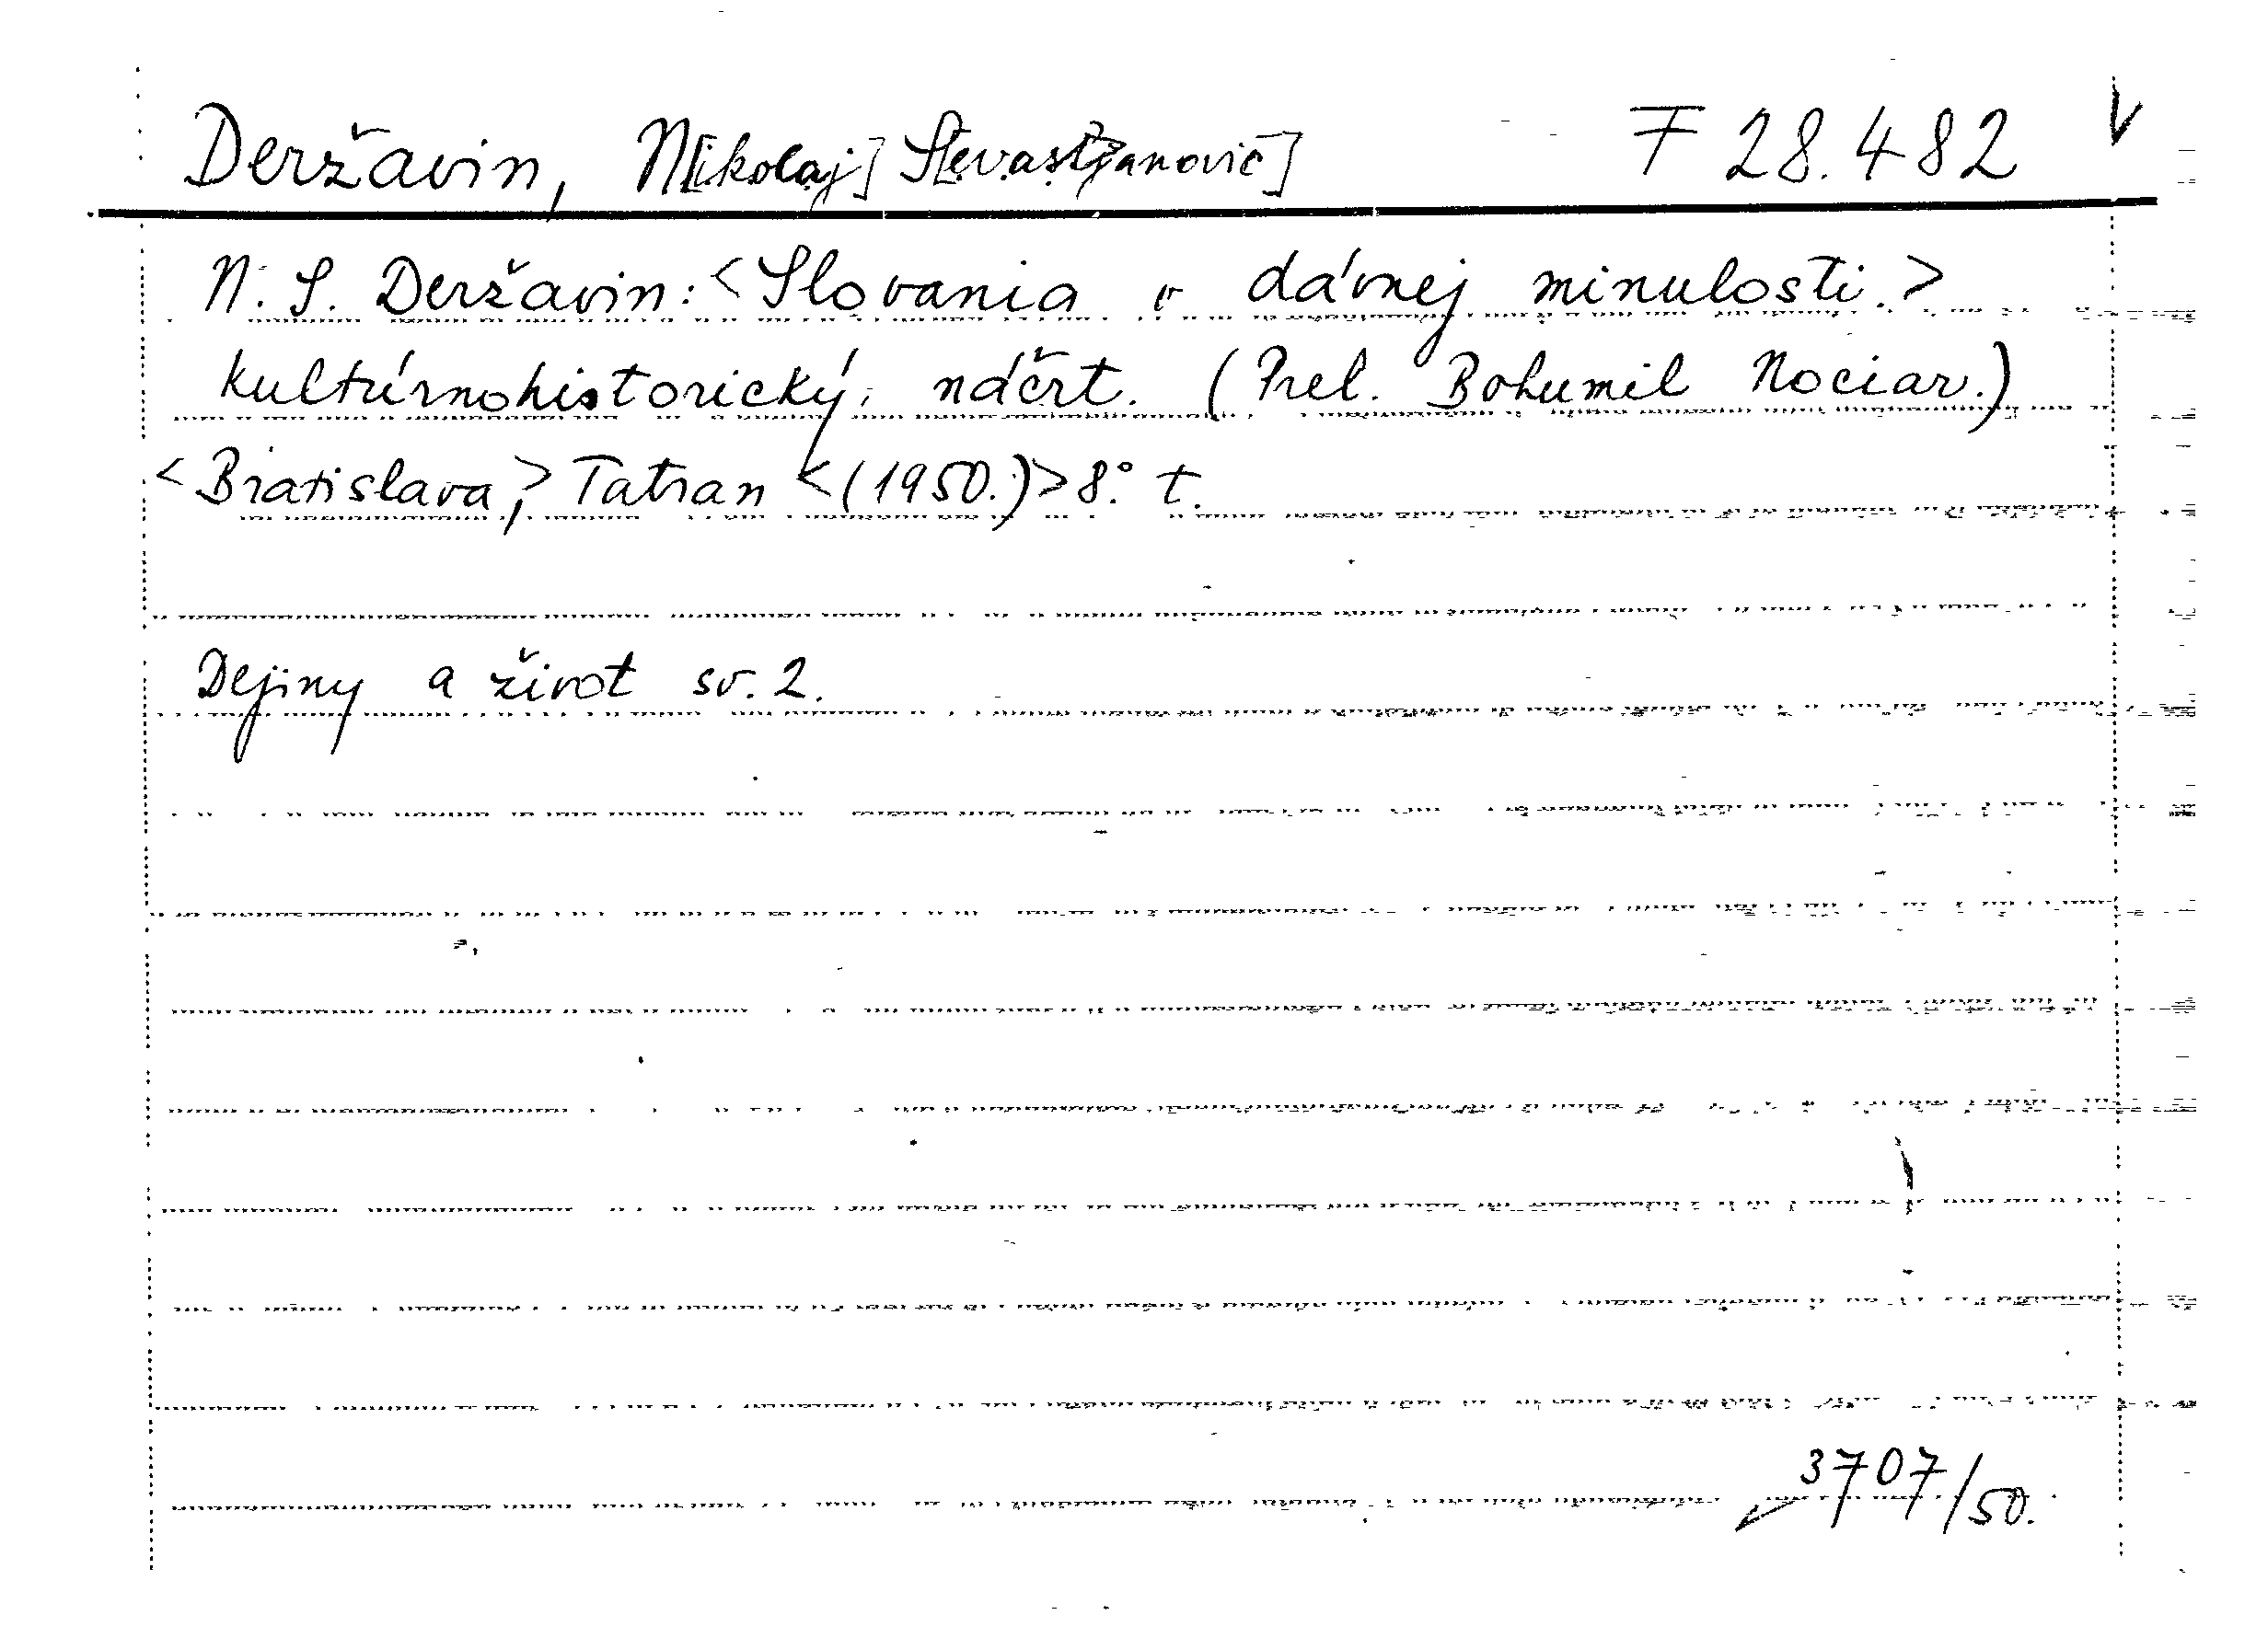 Deržavin, N[ikolaj] S[evastjanovič] F 28.482
N. S. Deržavin: <Slovania v dávnej minulosti.>
kultúrnohistorický náčrt. (Prel. Bohumil Nociar.)
<Bratislava,> Tatran <(1950.)> 8.° t.
Dejiny a život sv. 2.
3707/50.